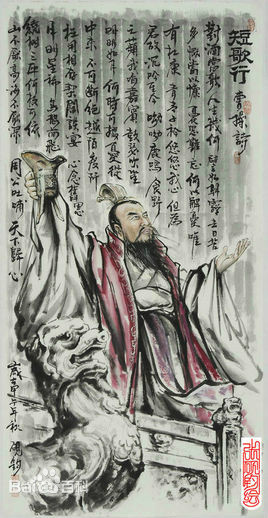 短歌行
曹操詩
對酒當歌人生幾何譬如朝露去日苦
多慨當以慷憂思難忘何解憂唯
有杜康青青子衿悠悠我心但為
君故沉吟至今呦呦鹿鳴食野
之苹我有嘉賓鼓瑟吹笙
明明如月何時可掇憂從
中來不可斷絕越陌度阡
枉用相存契闊談讌心念舊恩
月明星稀烏鵲南飛
繞樹三匝何枝可依
山不厭高海不厭深周公吐哺天下歸心
甲午年秋
Bai百科